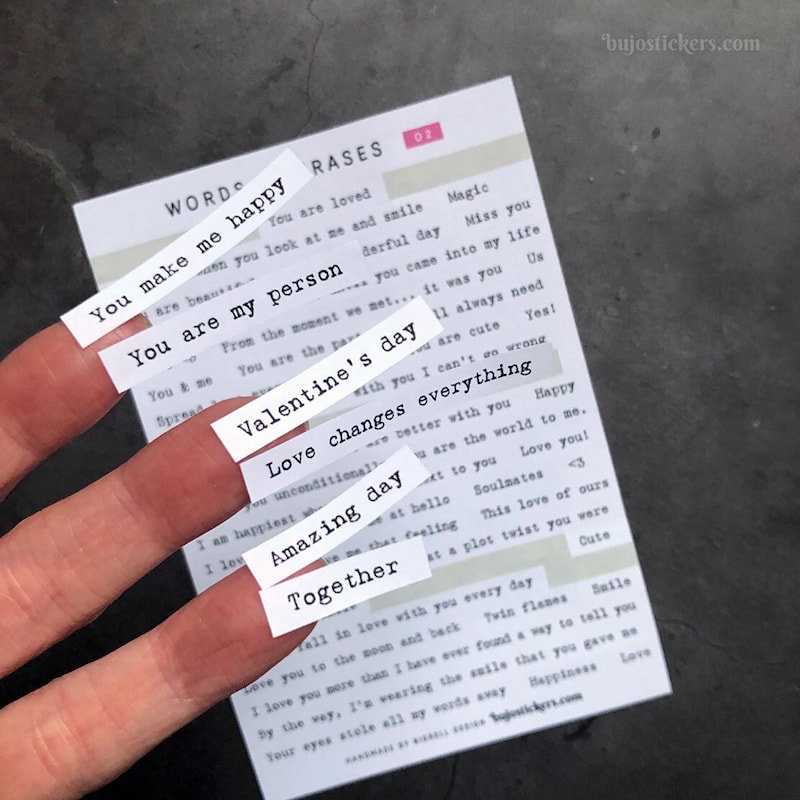 bujostickers.com
WORDS RASES 02
You are loved Magic
when you look at me and smile Miss you
derful day
you came into my life
From the moment we met... it was you Us
ll always need
You & me You are the are cute Yes!
Spread with you I can't go wrong
You make me happy
You are my person
Valentine's day
Love changes everything
better with you Happy
you unconditionall are the world to me.
I am happiest xt to you Love you!
at hello Soulmates <3
I lov me that feeling This love of ours
st a plot twist you were
Amazing day
Together
Cute
fall in love with you every day Twin flames Smile
Love you to the moon and back
I love you more than I have ever found a way to tell you
By the way, I'm wearing the smile that you gave me
Your eyes stole all my words away Happiness Love
HANDMADE BY BIDRELL DESIGN bujostickers.com